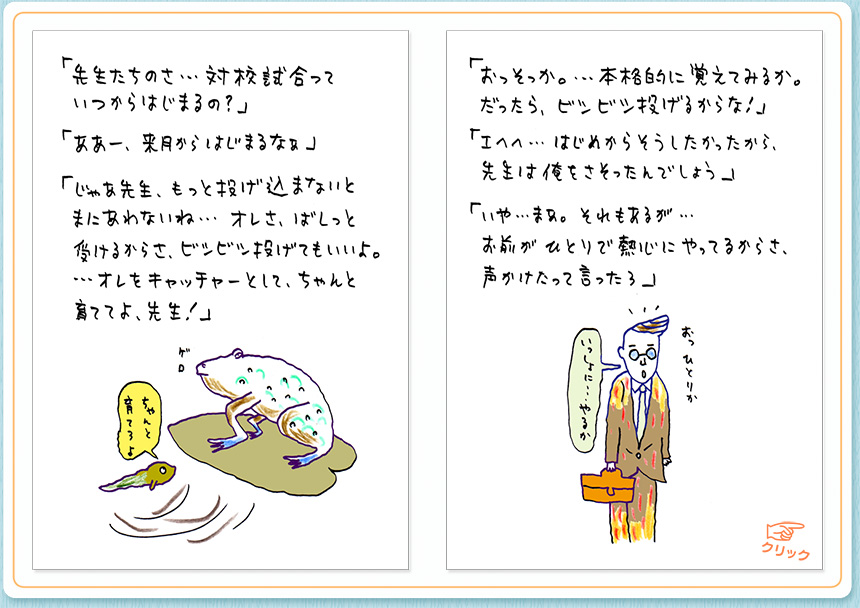 「先生たちのさ…対校試合って
いつからはじまるの？」
「ああー、来月からはじまるなぁ」
「じゃあ先生、もっと投げ込まないと
まにあわないね… オレさ、ばしっと
受けるからさ、ビシビシ投げてもいいよ。
…オレをキャッチャーとして、ちゃんと
育ててよ、先生！」
ゲロ
ちゃんと
育てろよ
「おっそっか。…本格的に覚えてみるか。
だったら、ビシビシ投げるからな！」
「エヘヘ… はじめからそうしたかったから、
先生は俺をさそったんでしょう」
「いや…まぁ。それもあるが…
お前がひとりで熱心にやってるからさ、
声かけたって言ったろ」
おっひとりか
いっしょに…やるか
クリック